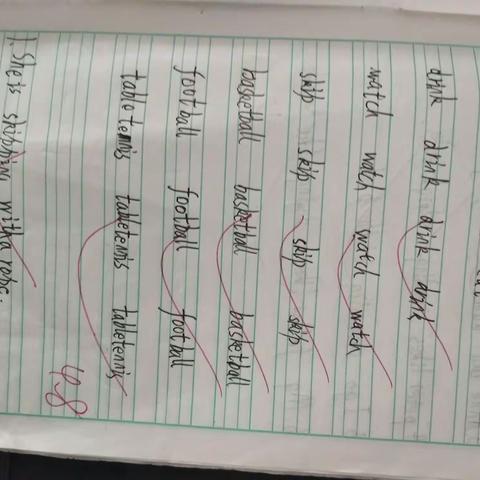 drink drink drink drink
watch watch watch watch
skip skip skip skip
basketball basketball basketball
football football football
table tennis tabletennis tabletennis
4.8
1. She is with a rope.